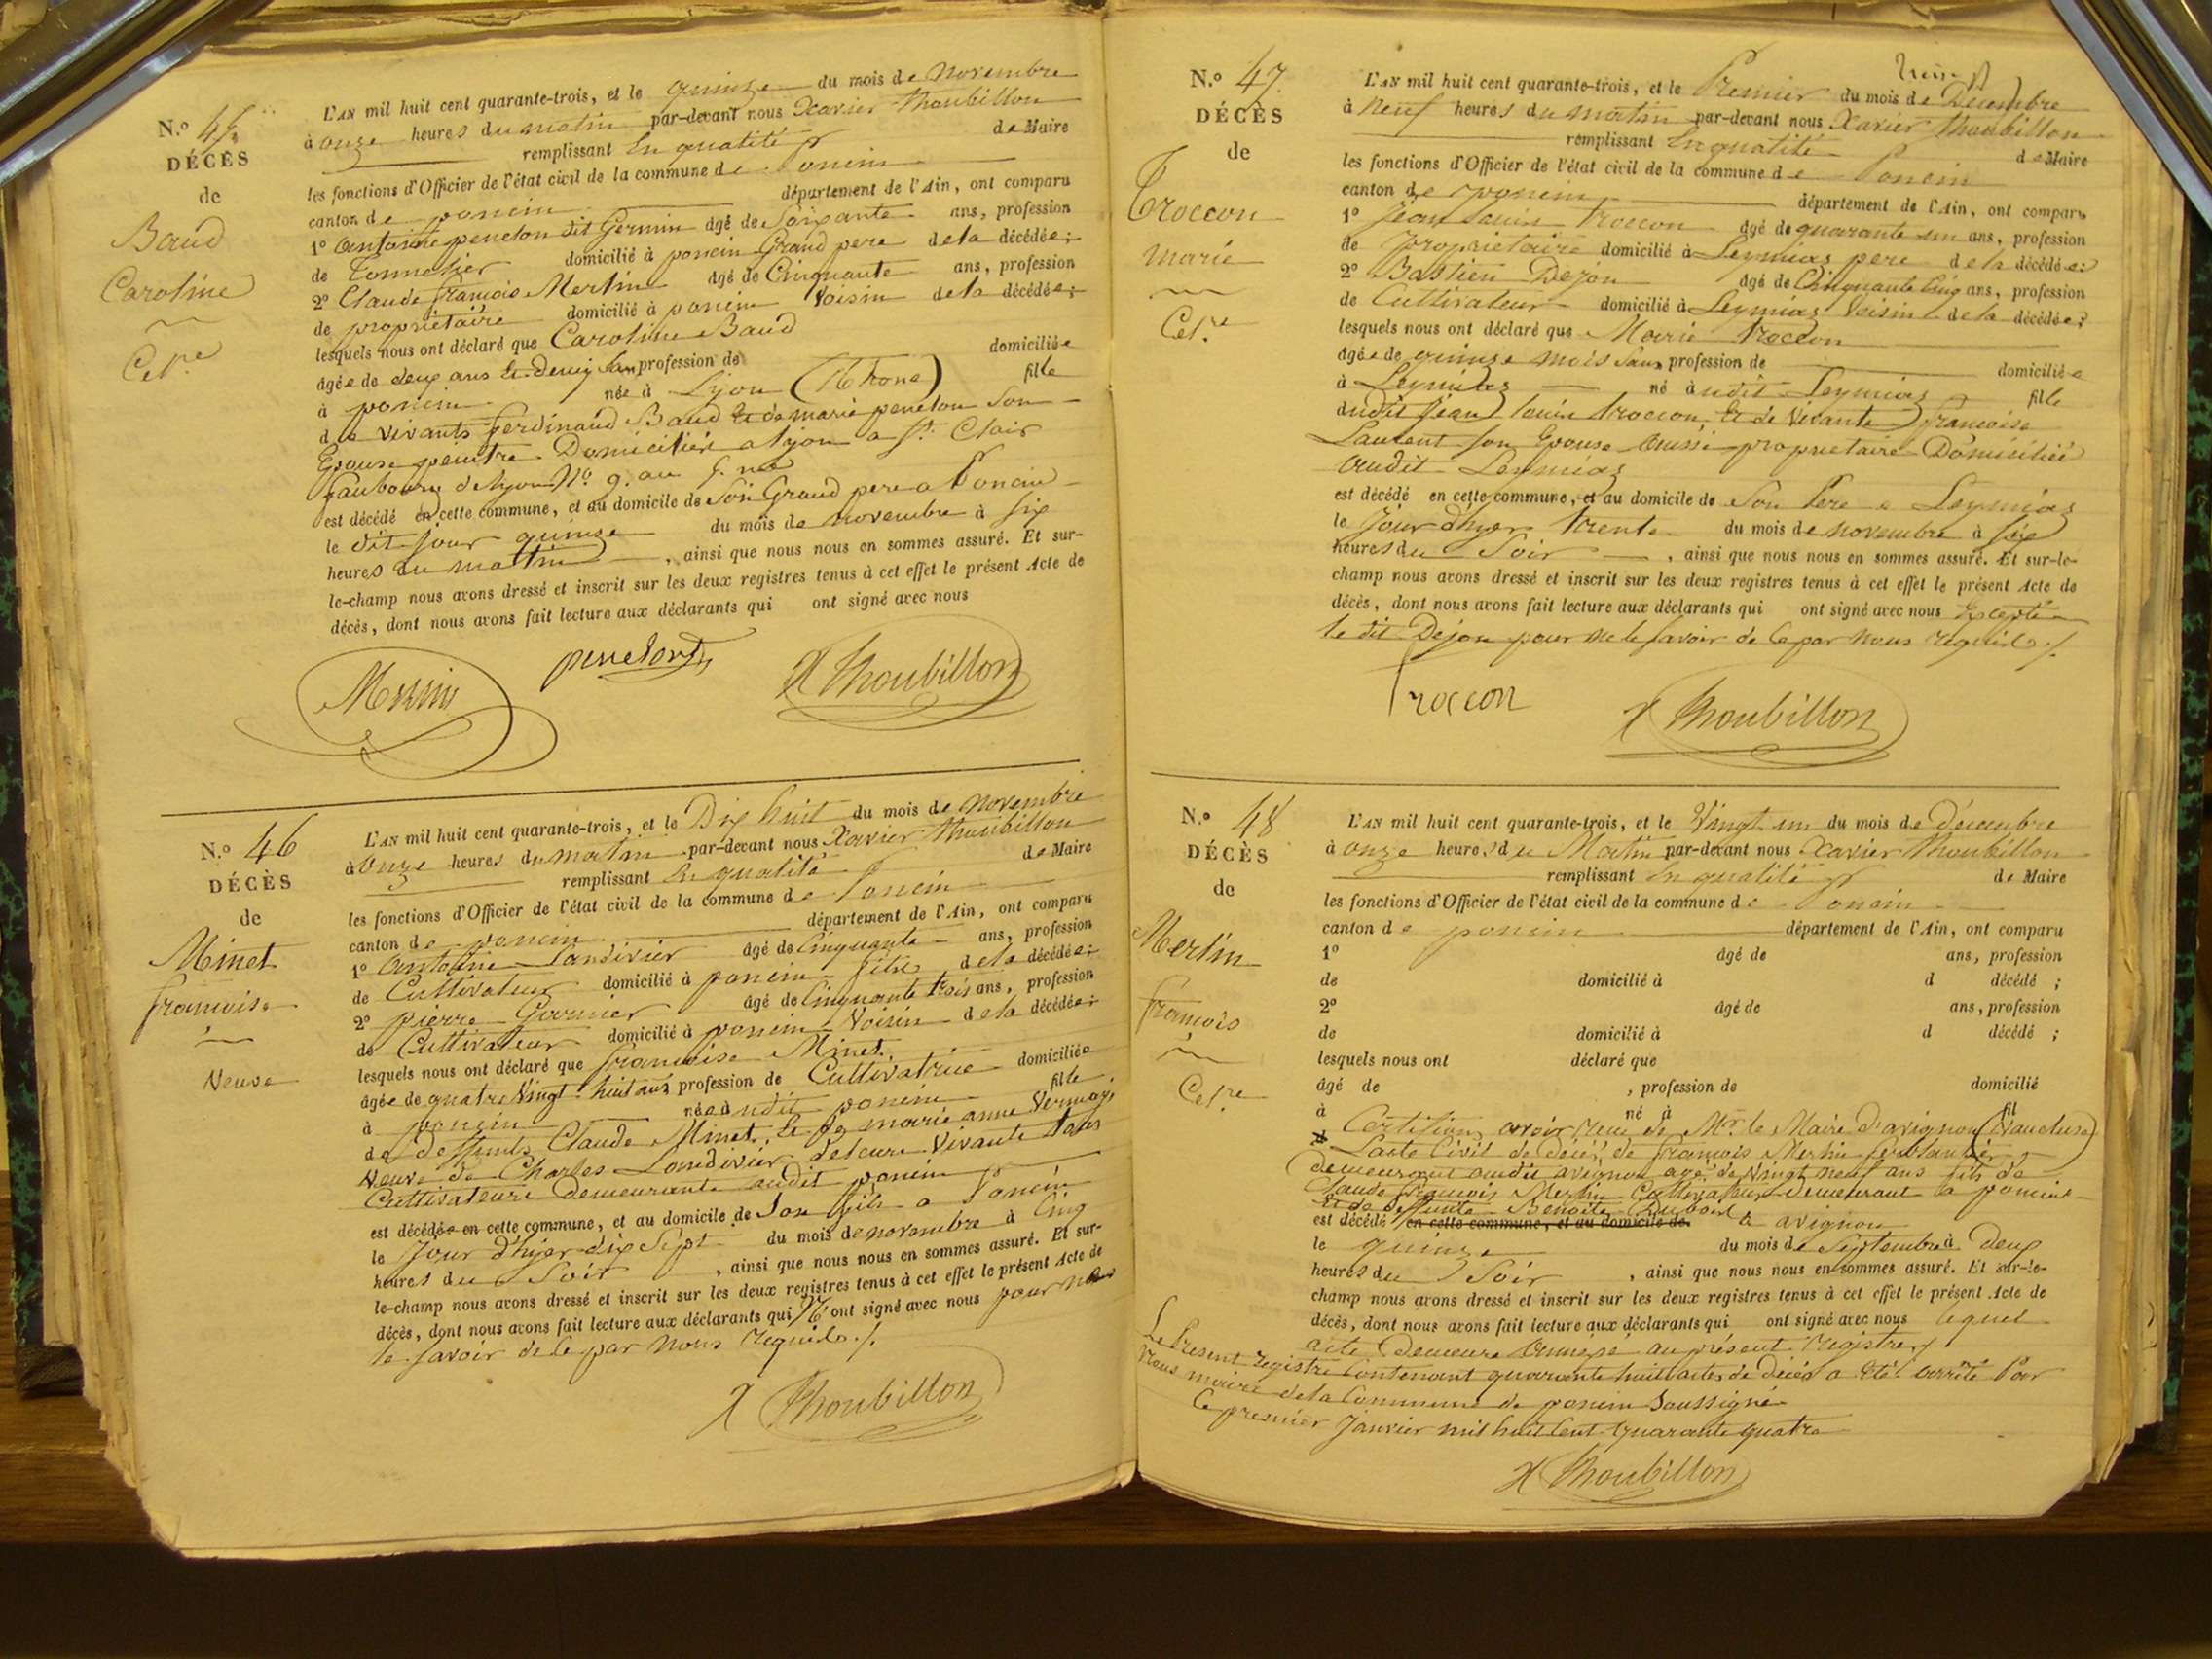 N.º 45
DÉCÈS
de
Baud
Caroline
Cel.re
L'AN mil huit cent quarante-trois, et le quinze du mois de novembre
à onze heures du matin par-devant nous Xavier Thoubillon
remplissant En qualité de Maire
les fonctions d'Officier de l'état civil de la commune de Poncin
canton de poncin département de l'Ain, ont comparu
1º Antoine peneton dit Germin âgé de Soixante ans, profession
de Tonnelier domicilié à poncin Grand pere de la décédée;
2º Claude francois Merlin âgé de Cinquante ans, profession
de propriétaire domicilié à poncin Voisin de la décédée;
lesquels nous ont déclaré que Caroline Baud
âgée de deux ans et demi San profession de domiciliée
à poncin née à Lyon (Rhone) fille
de vivants ferdinand Baud et de marie peneton Son
Epouse peintre Domiciliés a lyon a St. Clair
faubourg de lyon Nº 9. au
est décédé en cette commune, et au domicile de Son Grand pere a Poncin
le dit jour quinze du mois de novembre à Six
heures du matin, ainsi que nous nous en sommes assuré. Et sur-
le-champ nous avons dressé et inscrit sur les deux registres tenus à cet effet le présent Acte de
décès, dont nous avons fait lecture aux déclarants qui ont signé avec nous
Merlin peneton X Thoubillon
N.º 46
DÉCÈS
de
Minet
francoise
Veuve
L'AN mil huit cent quarante-trois, et le Dix huit du mois de novembre
à onze heures du matin par-devant nous Xavier Thoubillon
remplissant En qualité de Maire
les fonctions d'Officier de l'état civil de la commune de Poncin
canton de poncin département de l'Ain, ont comparu
1º Antoine Landivier âgé de Cinquante ans, profession
de Cultivateur domicilié à poncin fils de la décédée;
2º pierre Garnier âgé de Cinquante trois ans, profession
de Cultivateur domicilié à poncin Voisin de la décédée;
lesquels nous ont déclaré que francoise Minet
âgée de quatre Vingt huit ans profession de Cultivatrice domiciliée
à poncin née audit poncin fille
de deffunts Claude Minet, et de marie anne Vernay,
Veuve de Charles Landivier deleure Vivante dans
Cultivateure demeurante audit poncin
est décédée en cette commune, et au domicile de Son fils a Poncin
le Jour d'hyer dix Sept du mois de novembre à Cinq
heures du Soir, ainsi que nous nous en sommes assuré. Et sur-
le-champ nous avons dressé et inscrit sur les deux registres tenus à cet effet le présent Acte de
décès, dont nous avons fait lecture aux déclarants qui N'ont signé avec nous pour ne
le savoir de ce par nous requis ./.
X Thoubillon
N.º 47
DÉCÈS
de
Troccon
marie
Cel.re
L'AN mil huit cent quarante-trois, et le Premier du mois de Decembre
à Neuf heures du matin par-devant nous Xavier Thoubillon
remplissant En qualité de Maire
les fonctions d'Officier de l'état civil de la commune de Poncin
canton de poncin département de l'Ain, ont comparu
1º Jean Louis Troccon âgé de quarante un ans, profession
de propriétaire domicilié à Leymias pere de la décédée;
2º Bastien Dejon âgé de Cinquante Cinq ans, profession
de Cultivateur domicilié à Leymias Voisin de la décédée;
lesquels nous ont déclaré que Marie Troccon
âgée de quinze mois Sans profession de domiciliée
à Leymias né audit Leymias fille
dudit Jean louis troccon, Et de Vivante francoise
Laurent son Epouse aussi propriétaire Domiciliée
audit Leymias
est décédé en cette commune, et au domicile de Son Pere a Leymias
le Jour d'hyer trente du mois de novembre à Six
heures du Soir, ainsi que nous nous en sommes assuré. Et sur-le-
champ nous avons dressé et inscrit sur les deux registres tenus à cet effet le présent Acte de
décès, dont nous avons fait lecture aux déclarants qui ont signé avec nous Excepté
le dit Dejon pour ne le savoir de ce par nous requis ./.
Troccon X Thoubillon
N.º 48
DÉCÈS
de
Merlin
françois
Cel.re
L'AN mil huit cent quarante-trois, et le Vingt un du mois de décembre
à onze heures du Matin par-devant nous Xavier Thoubillon
remplissant En qualité de Maire
les fonctions d'Officier de l'état civil de la commune de Poncin
canton de poncin département de l'Ain, ont comparu
1º âgé de ans, profession
de domicilié à d décédé ;
2º âgé de ans, profession
de domicilié à d décédé ;
lesquels nous ont déclaré que
âgé de , profession de domicilié
à né à fil
Certifions avoir recu de Mr. le Maire d'avignon (Vaucluse)
L'acte Civil de décès de francois Merlin ferblantier
demeurant audit avignon agé de Vingt neuf ans fils de
Claude francois Merlin Cultivateur demeurant a poncin
Et de deffunte Benoite Dubois
est décédé en cette commune, et au domicile de à avignon
le quinze du mois de Septembre à Deux
heures du Soir, ainsi que nous nous en sommes assuré. Et sur-le-
champ nous avons dressé et inscrit sur les deux registres tenus à cet effet le présent Acte de
décès, dont nous avons fait lecture aux déclarants qui ont signé avec nous lequel
acte demeure annexé au présent registre
Le Present registre Contenant quarante huit actes de décès a été arrêté Par
Nous maire de la Commune de poncin Soussigné
Ce premier Janvier mil huit Cent quarante quatre
X Thoubillon